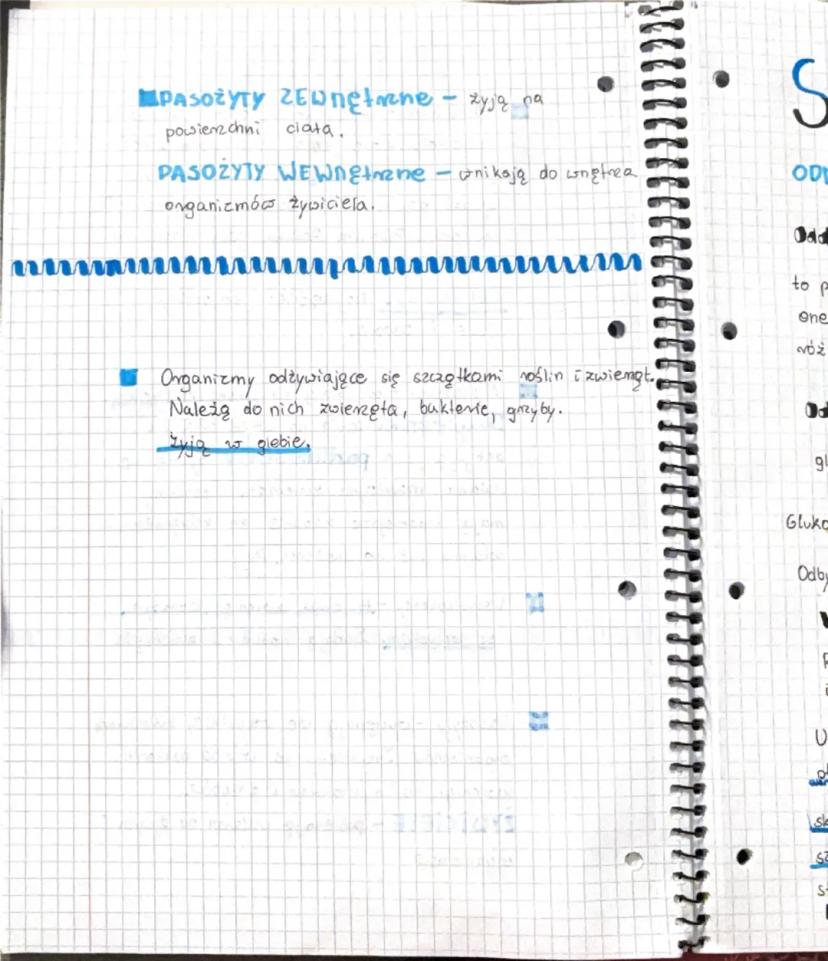 PASOŻYTY ZEWNĘTRZNE - żyją na
powierzchni ciała.
PASOŻYTY WEWNĘTRZNE - wnikają do wnętrza
organizmów żywiciela.
Organizmy odżywiające się szczątkami roślin i zwierząt.
Należą do nich zwierzęta, bakterie, grzyby.
żyją w glebie.
S
ODD
Odd
to p
ene
róż
Od
gl
Gluko
Odby